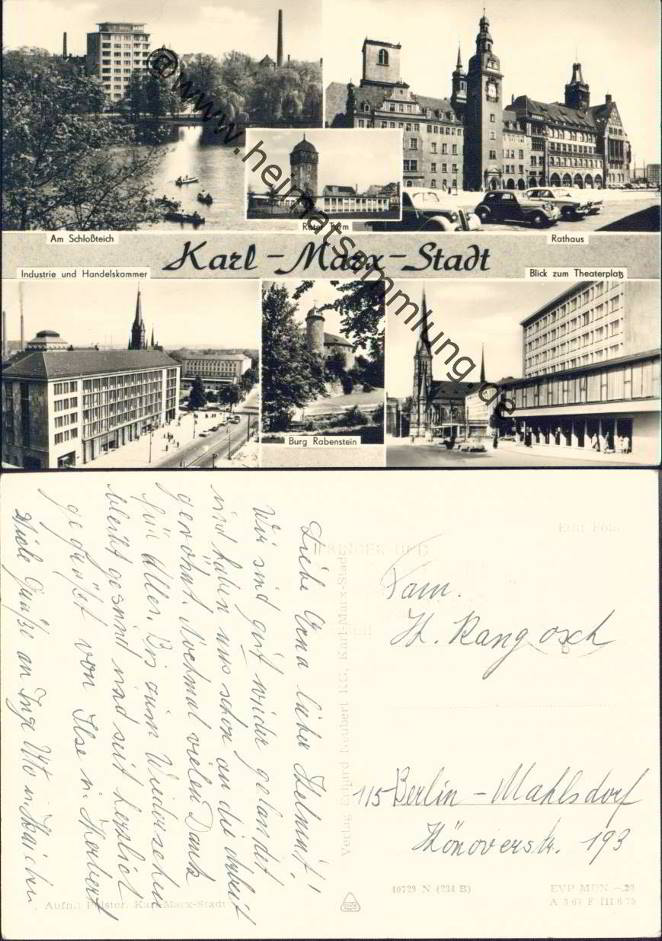 © www.heimatsammlung.de
Am Schloßteich
Roter Turm
Rathaus
Karl-Marx-Stadt
Industrie und Handelskammer
Blick zum Theaterplatz
Burg Rabenstein
Liebe Erna lieber Helmut!
Wir sind gut wieder gelandet
und haben uns schon an die Arbeit
gewöhnt. Nochmal vielen Dank
für alles. Bis zum Wiedersehen
bleibt gesund und seit herzlich
gegrüßt von Ilse u. Herbert
Viele Grüße an Inge Utto u.
Verlag Erhard Neubert KG, Karl-Marx-Stadt
Echt Foto
Fam.
H. Rangosch
115 Berlin-Mahlsdorf
Hönowerstr. 193
Aufn.: Pfister, Karl-Marx-Stadt
10729 N (234 B)
EVP MDN -.20
A 3 67 F III 6 75